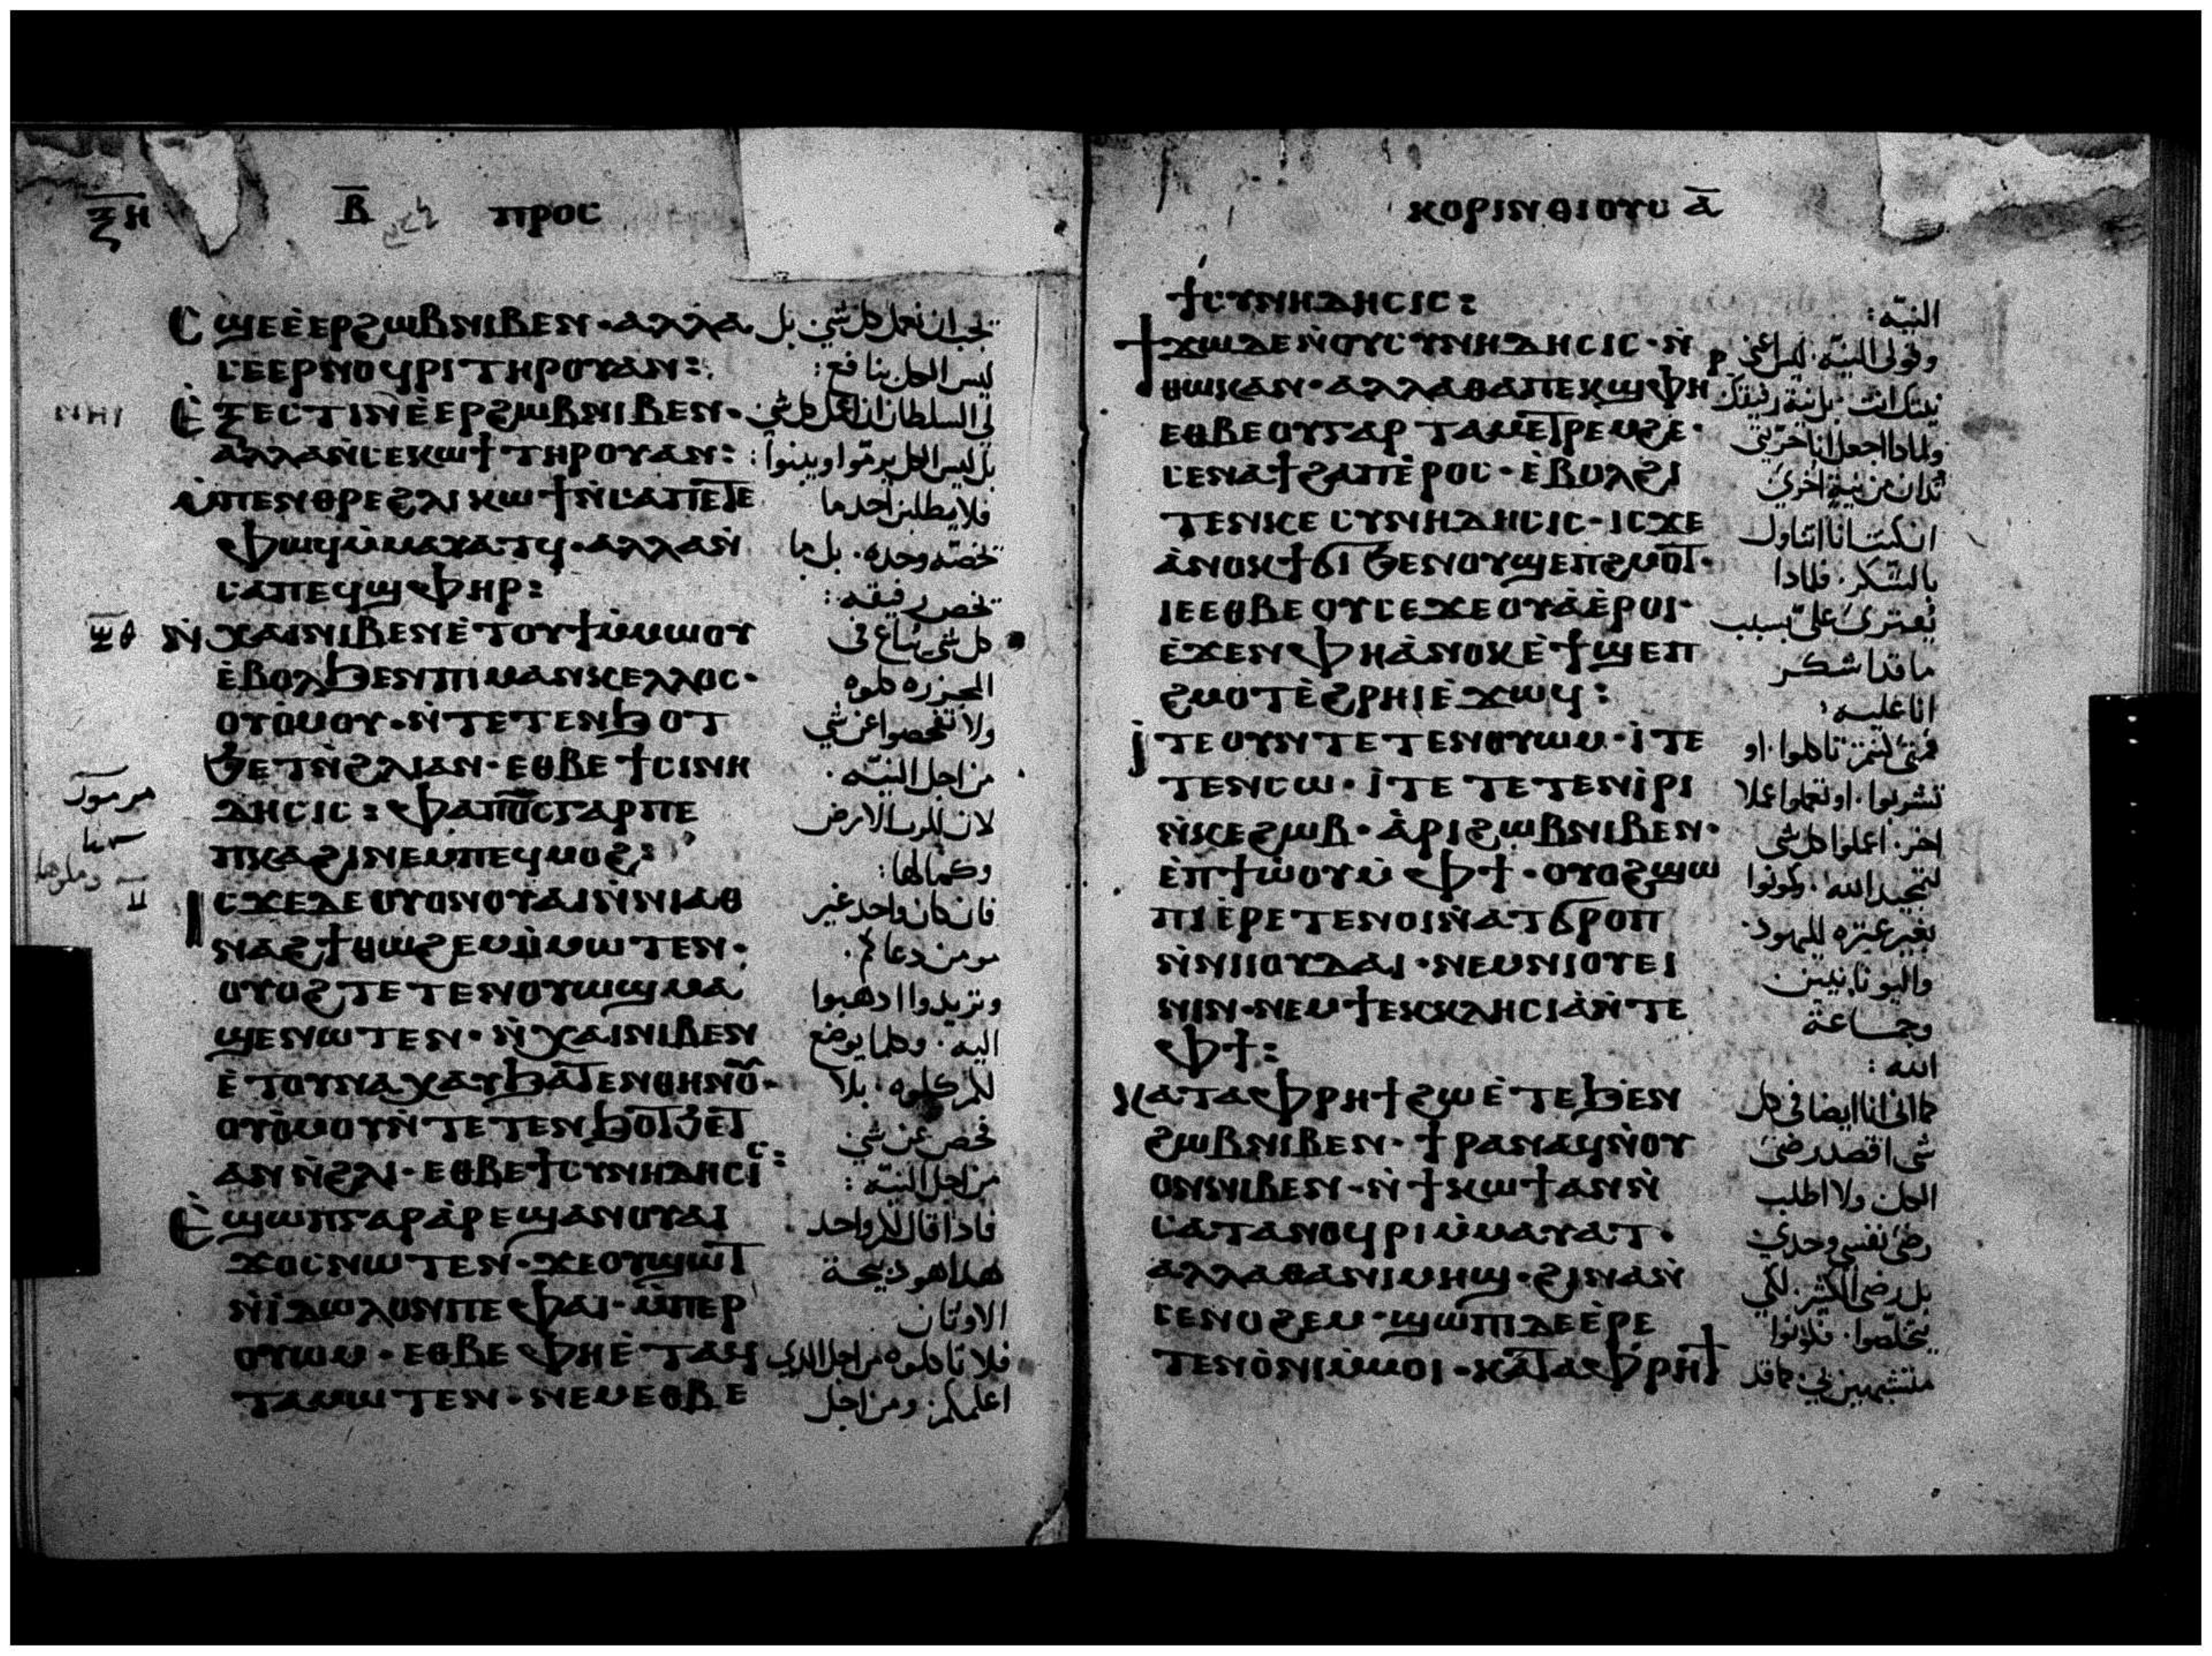 ⲝⲏ ⲃ ⲡⲣⲟⲥ
ⲥϣⲉⲉ̀ⲉⲣϩⲱⲃⲛⲓⲃⲉⲛ· ⲁⲗⲗⲁ
ⲥⲉⲉⲣⲛⲟϥⲣⲓ ⲧⲏⲣⲟⲩⲁⲛ:
ⲉ̀ⲝⲉⲥⲧⲓⲛⲉ̀ⲉⲣϩⲱⲃⲛⲓⲃⲉⲛ·
ⲁⲗⲗⲁⲛ̀ⲥⲉⲕⲱϯ ⲧⲏⲣⲟⲩⲁⲛ:
ⲙ̀ⲡⲉⲛⲑⲣⲉϩⲗⲓ ⲕⲱϯⲛ̀ⲥⲁⲡⲉⲧⲉ
ⲫⲱϥⲙ̀ⲙⲁⲩⲁⲧϥ· ⲁⲗⲗⲁⲛ̀
ⲥⲁⲡⲉϥϣⲫⲏⲣ:
ⲛ̀ⲭⲁⲓⲛⲓⲃⲉⲛⲉ̀ⲧⲟⲩϯⲙ̀ⲙⲱⲟⲩ
ⲉ̀ⲃⲟⲗϧⲉⲛⲡⲓⲙⲁⲛⲕⲉⲗⲗⲟⲥ·
ⲟⲩⲟ̀ⲙⲟⲩ· ⲛ̀ⲧⲉⲧⲉⲛϧⲟⲧ
ϧⲉⲧⲛ̀ϩⲗⲓⲁⲛ· ⲉⲑⲃⲉϯⲥⲓⲛⲏ
ⲇⲏⲥⲓⲥ: ⲫⲁⲡⲟ̅ⲥ̅ⲅⲁⲣⲡⲉ
ⲡⲕⲁϩⲓⲛⲉⲙⲡⲉϥⲙⲟϩ:
ⲓⲥϫⲉⲇⲉ ⲟⲩⲟⲛⲟⲩⲁⲓⲛ̀ⲛⲓⲁⲑ
ⲛⲁϩϯⲑⲱϩⲉⲙⲙ̀ⲙⲱⲧⲉⲛ·
ⲟⲩⲟϩⲧⲉⲧⲉⲛⲟⲩⲱϣⲙⲁ
ϣⲉⲛⲱⲧⲉⲛ· ⲛ̀ⲭⲁⲓⲛⲓⲃⲉⲛ
ⲉ̀ⲧⲟⲩⲛⲁⲭⲁⲩϧⲁⲧⲉⲛⲑⲏⲛⲟ̅·
ⲟⲩⲟ̀ⲙⲟⲩⲛ̀ⲧⲉⲧⲉⲛϧⲟⲧϧⲉⲧ
ⲁⲛⲛ̀ϩⲗⲓ· ⲉⲑⲃⲉϯⲥⲩⲛⲏⲇⲏⲥⲓⲥ:
ⲉ̀ϣⲱⲡⲅⲁⲣⲁ̀ⲣⲉϣⲁⲛⲟⲩⲁⲓ
ϫⲟⲥⲛⲱⲧⲉⲛ· ϫⲉⲟⲩϣⲱⲧ
ⲛ̀ⲓ̀ⲇⲱⲗⲟⲛⲡⲉ ⲫⲁⲓ· ⲙ̀ⲡⲉⲣ
ⲟⲩⲱⲙ· ⲉⲑⲃⲉ ⲫⲏⲉ̀ⲧⲁϥ
ⲧⲁⲙⲱⲧⲉⲛ· ⲛⲉⲙⲉⲑⲃⲉ
ليس الكل بنافع:
فلا يطلبن احد ما
تخصه وحده· بل ما
تخص رفيقه:
كل شي يباع في
المجزره كلوه
ولا تفحصوا عن شي
من اجل النيّه·
لان للرب الارض
وكمالها:
فان كان واحد غير
مومن دعاكم·
وتريدوا اذهبوا
اليه· وكلما يوضع
لكم كلوه· بلا
فحص عن شي
من اجل النيّه:
فاذا قال لكم واحد
هذا هو ذبيحة
الاوثان
فلا تاكلوه من اجل الذي
اعلمكم· ومن اجل
ⲕⲟⲣⲓⲛⲑⲓⲟⲩⲥ ⲁ̅
ϯⲥⲩⲛⲏⲇⲏⲥⲓⲥ:
ϯϫⲱⲇⲉⲛ̀ⲟⲩⲥⲩⲛⲏⲇⲏⲥⲓⲥ· ⲛ̀
ⲑⲱⲕⲁⲛ· ⲁⲗⲗⲁⲑⲁⲡⲉⲕϣⲫⲏⲣ
ⲉⲑⲃⲉⲟⲩⲅⲁⲣ ⲧⲁⲙⲉⲧⲣⲉⲙϩⲉ̀·
ⲥⲉⲛⲁϯϩⲁⲡⲉ̀ⲣⲟⲥ· ⲉ̀ⲃⲟⲗϩⲓ
ⲧⲉⲛⲕⲉ ⲥⲩⲛⲏⲇⲏⲥⲓⲥ· ⲓⲥϫⲉ
ⲁ̀ⲛⲟⲕϯϭⲓ ϧⲉⲛⲟⲩϣⲉⲡϩⲙⲟⲧ·
ⲓⲉⲉⲑⲃⲉ ⲟⲩⲥⲉϫⲉⲟⲩⲁ̀ⲉ̀ⲣⲟⲓ·
ⲉ̀ϫⲉⲛⲫⲏⲁ̀ⲛⲟⲕⲉ̀ϯϣⲉⲡ
ϩⲙⲟⲧⲉ̀ϩⲣⲏⲓⲉ̀ϫⲱϥ:
ⲓ̀ⲧⲉ ⲟⲩⲛⲧⲉⲧⲉⲛⲟⲩⲱⲙ· ⲓ̀ⲧⲉ
ⲧⲉⲛⲥⲱ· ⲓ̀ⲧⲉ ⲧⲉⲧⲉⲛⲓ̀ⲣⲓ
ⲛ̀ⲕⲉϩⲱⲃ· ⲁ̀ⲣⲓϩⲱⲃⲛⲓⲃⲉⲛ·
ⲉ̀ⲡⲧⲱ̀ⲟⲩⲙ̀ ⲫϯ· ⲟⲩⲟϩϣⲱ
ⲡⲓⲉ̀ⲣⲉⲧⲉⲛⲟⲓⲛ̀ⲁⲧϭⲣⲟⲡ
ⲛ̀ⲛⲓⲓⲟⲩⲇⲁⲓ· ⲛⲉⲙⲛⲓⲟⲩⲉⲓ
ⲛⲓⲛ· ⲛⲉⲙϯⲉⲕⲕⲗⲏⲥⲓⲁ̀ⲛ̀ⲧⲉ
ⲫϯ:
ⲕⲁⲧⲁⲫⲣⲏϯ ϩⲱⲉ̀ⲧⲉϧⲉⲛ
ϩⲱⲃⲛⲓⲃⲉⲛ· ϯⲣⲁⲛⲁϥⲛ̀ⲟⲩ
ⲟⲛⲛⲓⲃⲉⲛ· ⲛ̀ϯⲕⲱϯⲁⲛⲛ̀
ⲥⲁⲧⲁⲛⲟϥⲣⲓⲙ̀ⲙⲁⲩⲁⲧ·
ⲁⲗⲗⲁⲑⲁⲛⲓⲙⲏϣ· ϩⲓⲛⲁⲛ̀
ⲥⲉⲛⲟϩⲉⲙ· ϣⲱⲡⲓⲇⲉⲉ̀ⲣⲉ
ⲧⲉⲛⲟ̀ⲛⲓⲙ̀ⲙⲟⲓ· ⲕⲁⲧⲁⲫⲣⲏϯ
النيّه:
ان كنت انا اتناول
بالشكر· فلماذا
يُفترى عليّ بسبب
ما قد اشكر
انا عليه:
اخر· اعملوا كل شي
لتمجيد الله· وكونوا
بغير عثره لليهود·
واليونانيين
وجماعة
الله:
كما اني انا ايضا في كل
شي اقصد رضى
الكل· ولا اطلب
رضى نفسي وحدي
بل رضى الكثير· لكي
يخلصوا· فكونوا
متشبهين بي كما قد